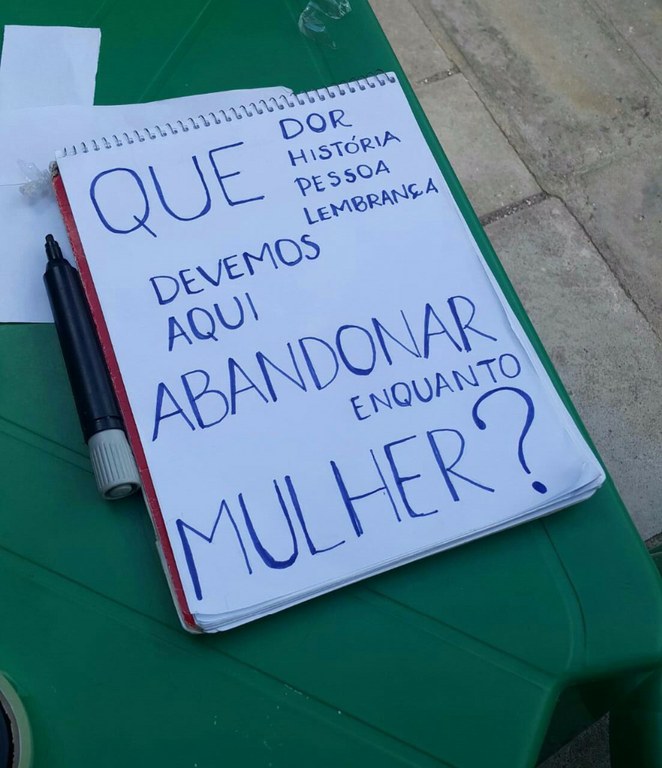 QUE
DOR
HISTÓRIA
PESSOA
LEMBRANÇA
DEVEMOS
AQUI
ABANDONAR
ENQUANTO
MULHER?